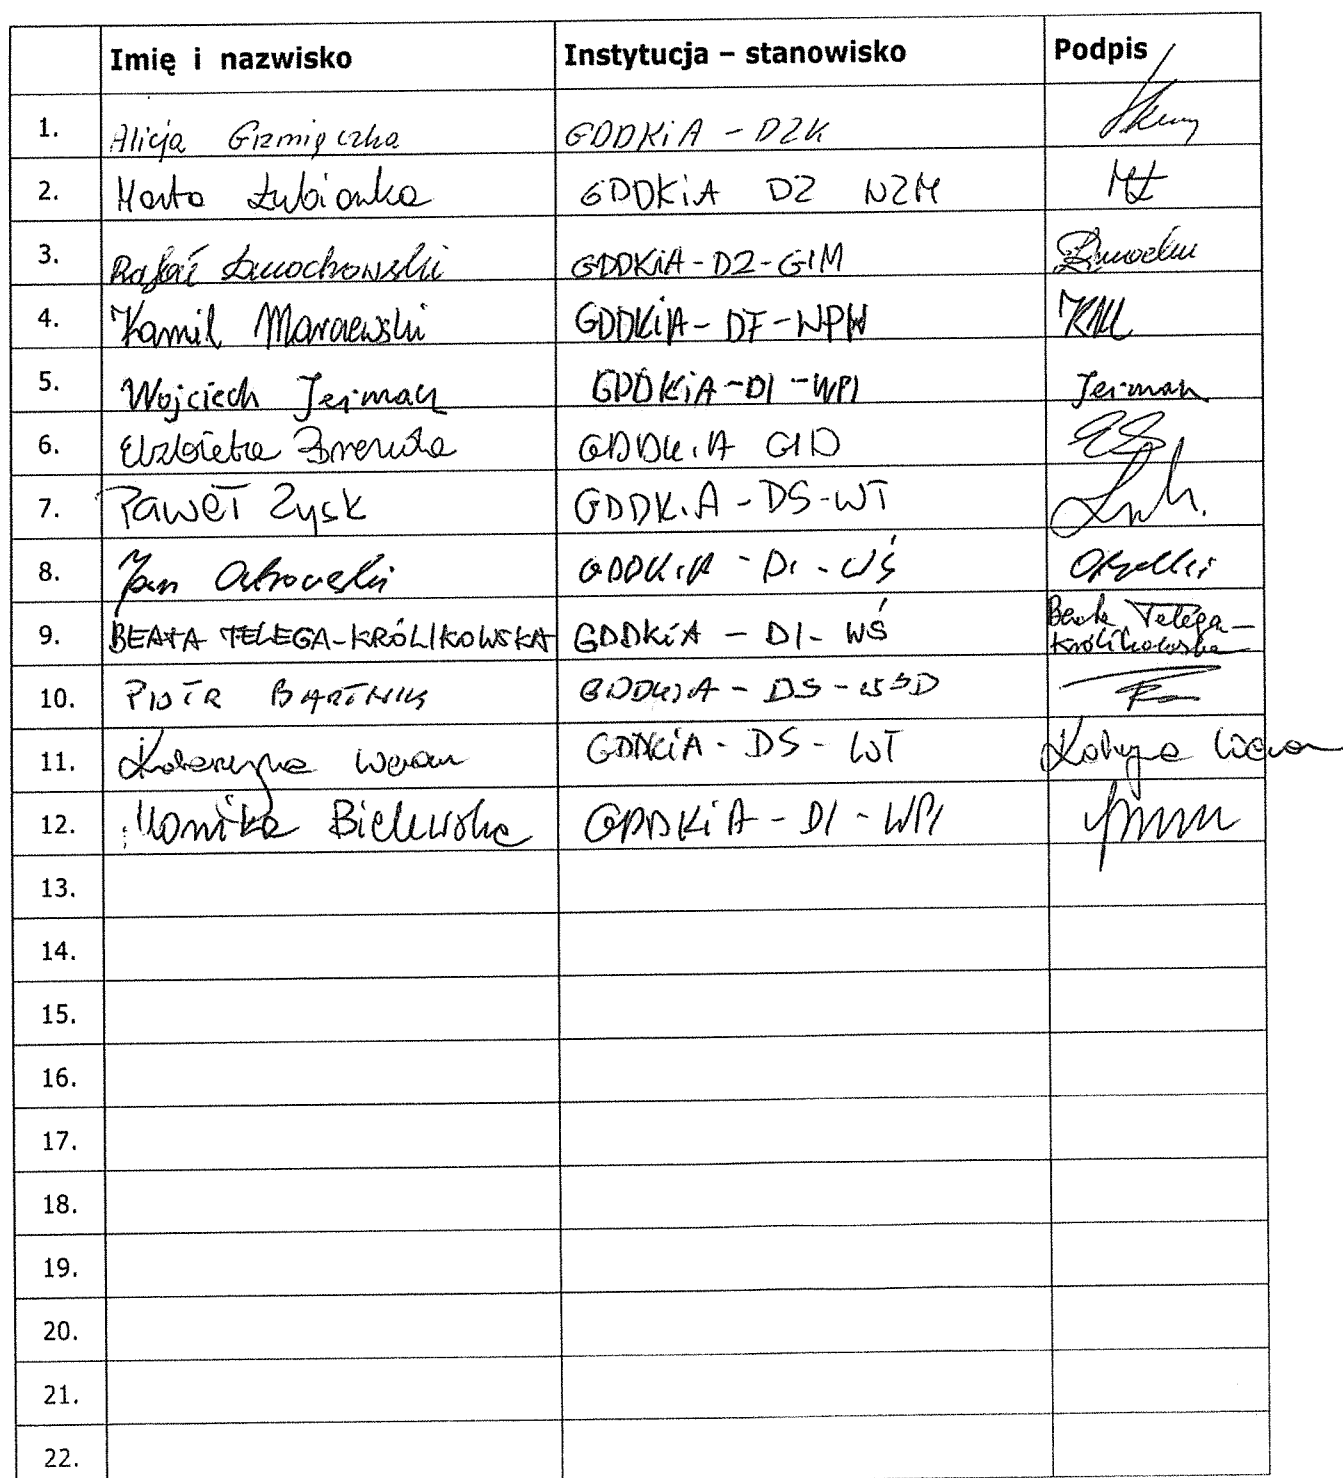 Imię i nazwisko Instytucja – stanowisko Podpis
1. Alicja Grzmiączka GDDKiA - DZK
2. Marta Łubianka GDDKiA DZ NZM MŁ
3. Rafał Żmochowski GDDKiA-DZ-GIM
4. Kamil GDDKiA-DF-WPW
5. Wojciech Jerman GDDKiA-DI-WPI Jerman
6. Elżbieta GDDKiA GID
7. Paweł Zysk GDDKiA-DS-WT
8. Jan Ostrowski GDDKiA - DI - WŚ
9. BEATA TELEGA-KRÓLIKOWSKA GDDKiA - DI- WŚ Beata Telega-
Królikowska
10. PIOTR BARTNIK GDDKiA - DS -
11. Katarzyna GDDKiA - DS - WT
12. Monika Bielewska GDDKiA - DI - WPI
13.
14.
15.
16.
17.
18.
19.
20.
21.
22.